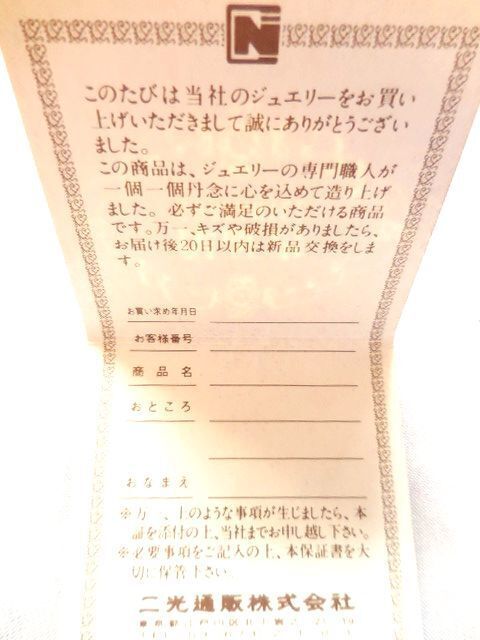 N
このたびは当社のジュエリーをお買い
上げいただきまして誠にありがとうござい
ました。
この商品は、ジュエリーの専門職人が
一個一個丹念に心を込めて造り上げ
ました。必ずご満足のいただける商品
です。万一、キズや破損がありましたら、
お届け後20日以内は新品交換をしま
す。
お買い求め年月日
お客様番号
商品名
おところ
おなまえ
※万一、上のような事項が生じましたら、本
証を添付の上、当社までお申し越し下さい。
※必要事項をご記入の上、本保証書を大
切に保管下さい。
二光通販株式会社